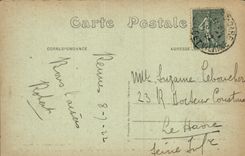 Carte Postale
CORRESPONDANCE
ADRESSE
Rennes 8-7-22
Bons baisers
Robert
Mlle Suzanne Leboucher
23 R Docteur Cousture
Le Havre
Seine Infre